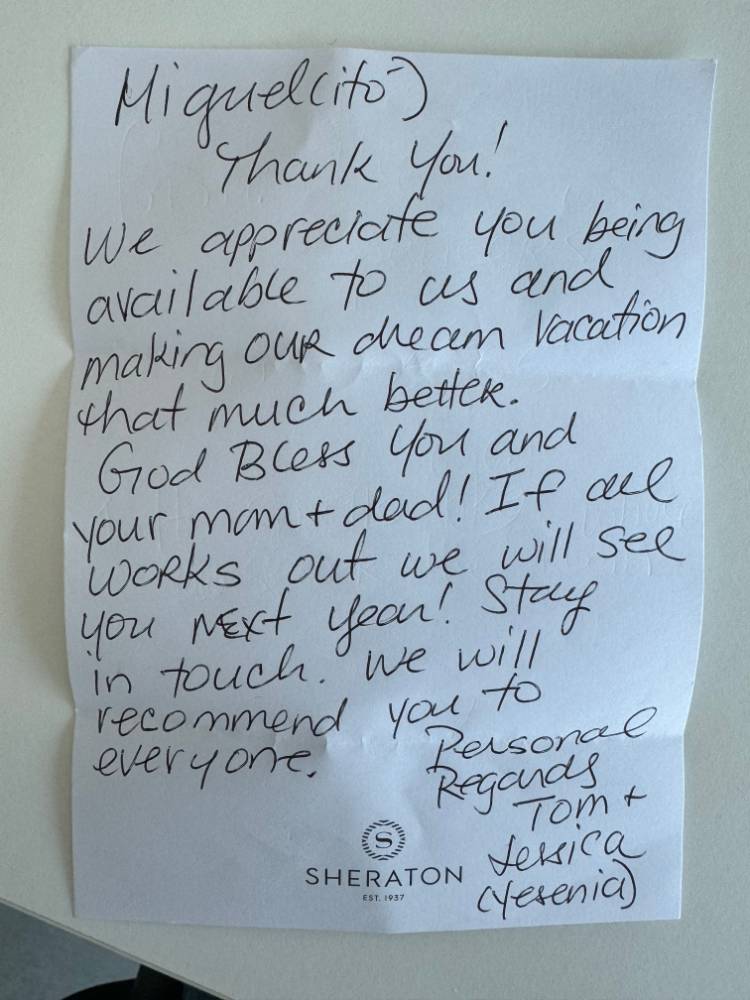 Miguel(ito)
Thank You!
We appreciate you being
available to us and
making our dream vacation
that much better.
God Bless You and
your mom + dad! If all
works out we will see
you next year! Stay
in touch. We will
recommend you to
everyone.
Personal
Regards
Tom +
Jessica
(Yesenia)
S
SHERATON
EST. 1937